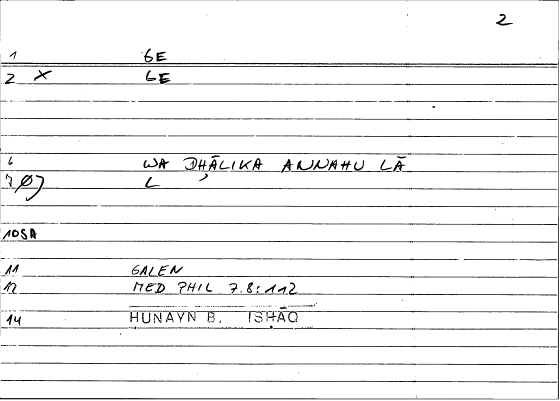 2
1 GE
2 X GE
6 WA DHĀLIKA ANNAHU LĀ
7 Ø) L
10SA
11 GALEN
12 MED PHIL 7.8:112
14 HUNAYN B. ISHĀQ